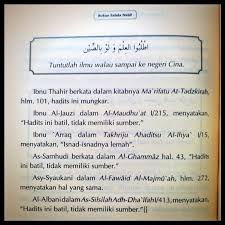 Bukan Sabda Nabi!
اُطْلُبُوا الْعِلْمَ وَ لَوْ بِالصِّيْنِ
Tuntutlah ilmu walau sampai ke negeri Cina.
Ibnu Thahir berkata dalam kitabnya Ma'rifatu At-Tadzkirah,
hlm. 101, hadits ini mungkar.
Ibnu Al-Jauzi dalam Al-Maudhu'at I/215, menyatakan,
"Hadits ini batil, tidak memiliki sumber."
Ibnu 'Arraq dalam Takhriju Ahaditsu Al-Ihya' I/15,
menyatakan, "Isnad-isnadnya lemah".
As-Samhudi berkata dalam Al-Ghammaz hal. 43, "Hadits
ini batil, tidak memiliki sumber."
Asy-Syaukani dalam Al-Fawaid Al-Majmu'ah, hlm. 272,
menyatakan hal yang sama.
Al-Albani dalam As-Silsilah Adh-Dha'ifah I/413, menyatakan,
"Hadits ini batil, tidak memiliki sumber."[]